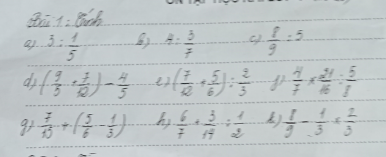 Bài 1: Tính
a) 3 : 1/5 b) 4 : 3/7 c) 8/9 : 5
d) (9/5 + 7/12) - 4/5 e) (7/12 + 5/6) : 2/3 f) 4/7 × 21/16 : 5/8
g) 7/13 + (5/6 - 1/3) h) 6/7 + 3/14 : 1/2 k) 8/9 - 1/3 × 2/3